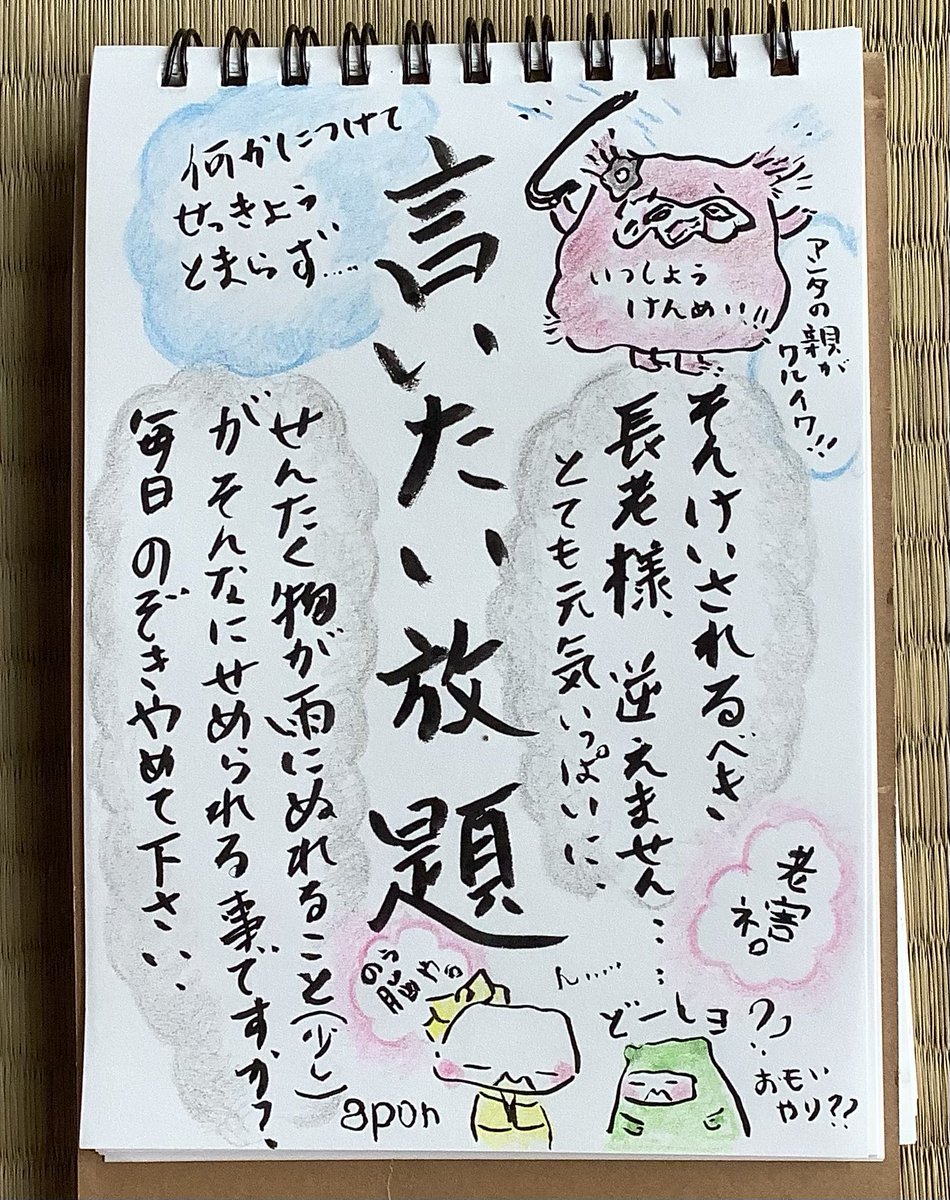 何かにつけて
せっきょう
とまらず....
言いたい放題
いっしょう
けんめい!!
アンタの親が
ワルイワ!!
そんけいされるべき
長老様、逆えません.....
とても元気いっぱいに、
せんたく物が雨にぬれること(少し)
がそんなにせめられる事ですか?
毎日のぞきやめて下さい、、
老害
ネ。
のう
脳や。
ん.....
どーしヨ
おもい
やり??
apon